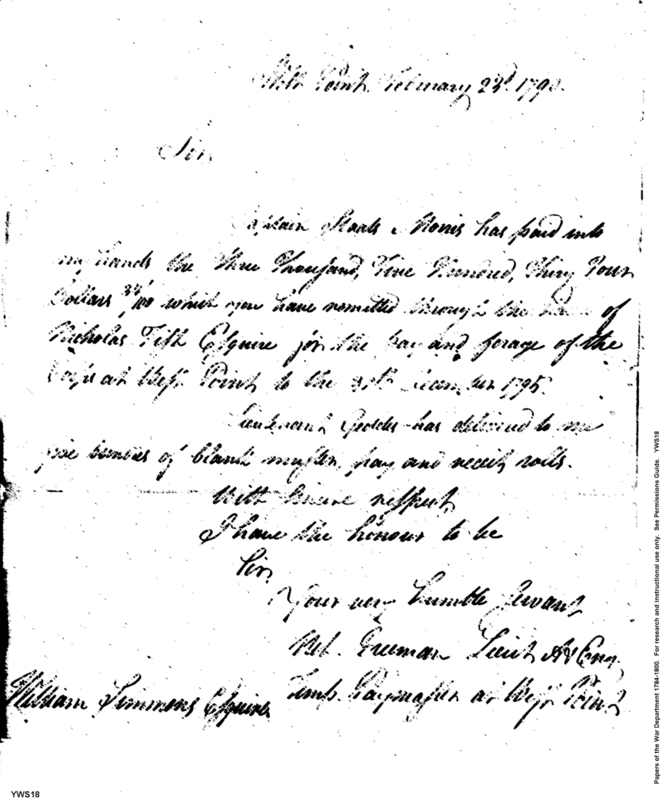 West Point February 23d. 179
Sir,
Captain Staats Morris has paid into
my hands the three Thousand, Nine Hundred, Thirty Four
Dollars 34/100 which you have remitted through the hands of
Nicholas Fish Esquire for the pay and forage of the
Corps at West Point to the 31st December 1795.
Lieutenant Geddes has delivered to me
five bundles of blank muster, pay and receipt rolls.
With sincere respect,
I have the honour to be
Sir,
Your very humble Servant,
Nel. Freeman Lieut A & Eng.
Temp. Paymaster at West Point
William Simmons Esquire
YWS18
Papers of the War Department 1784-1800. For research and instructional use only. See Permissions Guide. YWS18